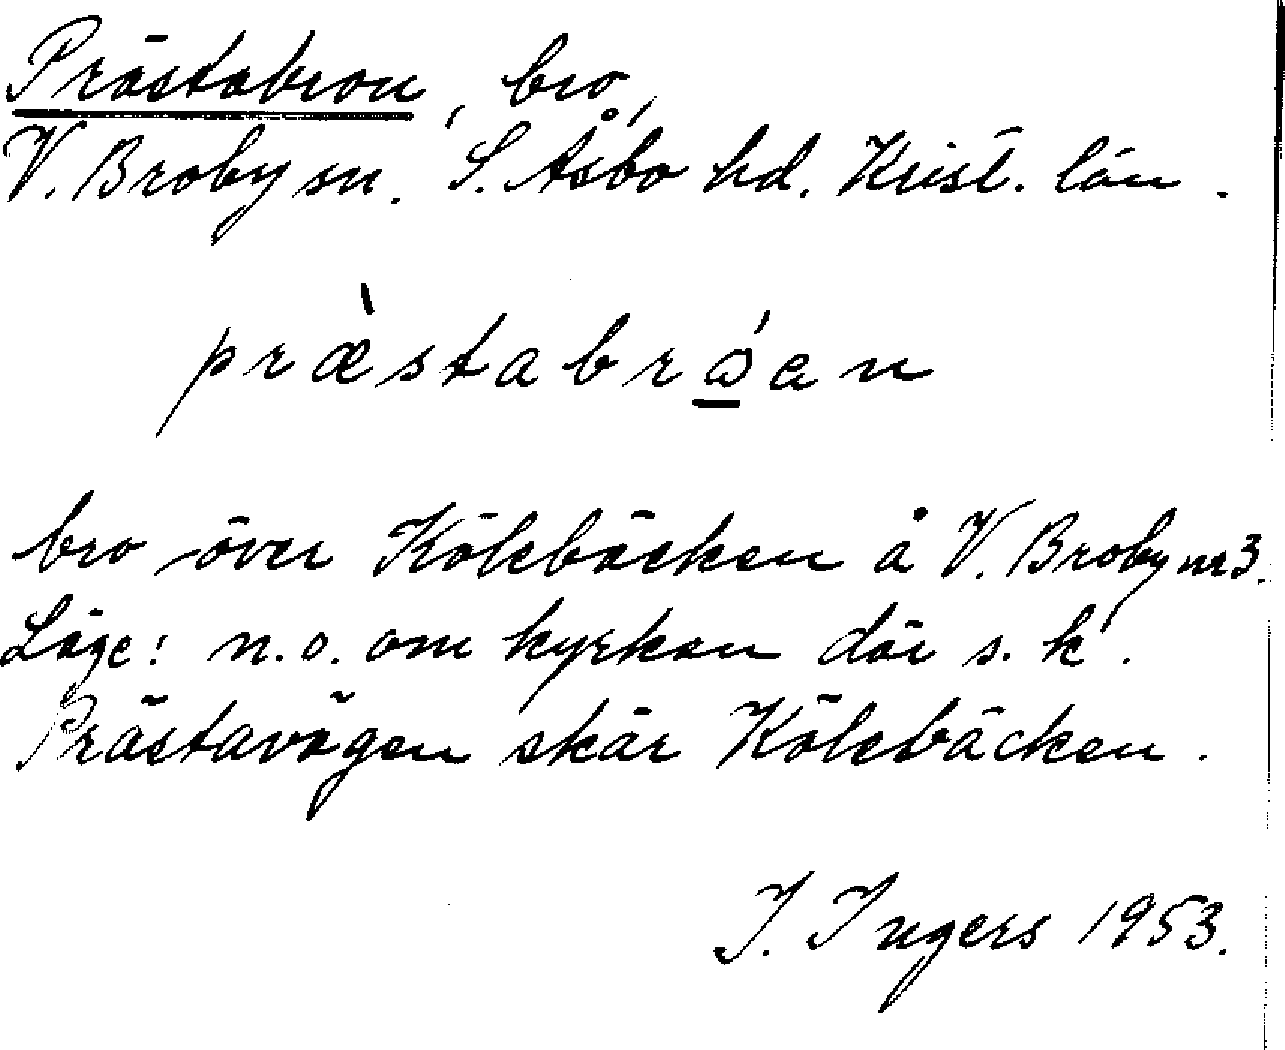 Prästabron, bro,
V. Broby sn. S. Åsbo hd. Krist. län.
præ̀stabrǻ̲an
bro över Kölebäcken å V. Broby nr 3.
Läge: n.o. om kyrkan där s. k.
Prästavägen skär Kölebäcken.
I. Ingers 1953.